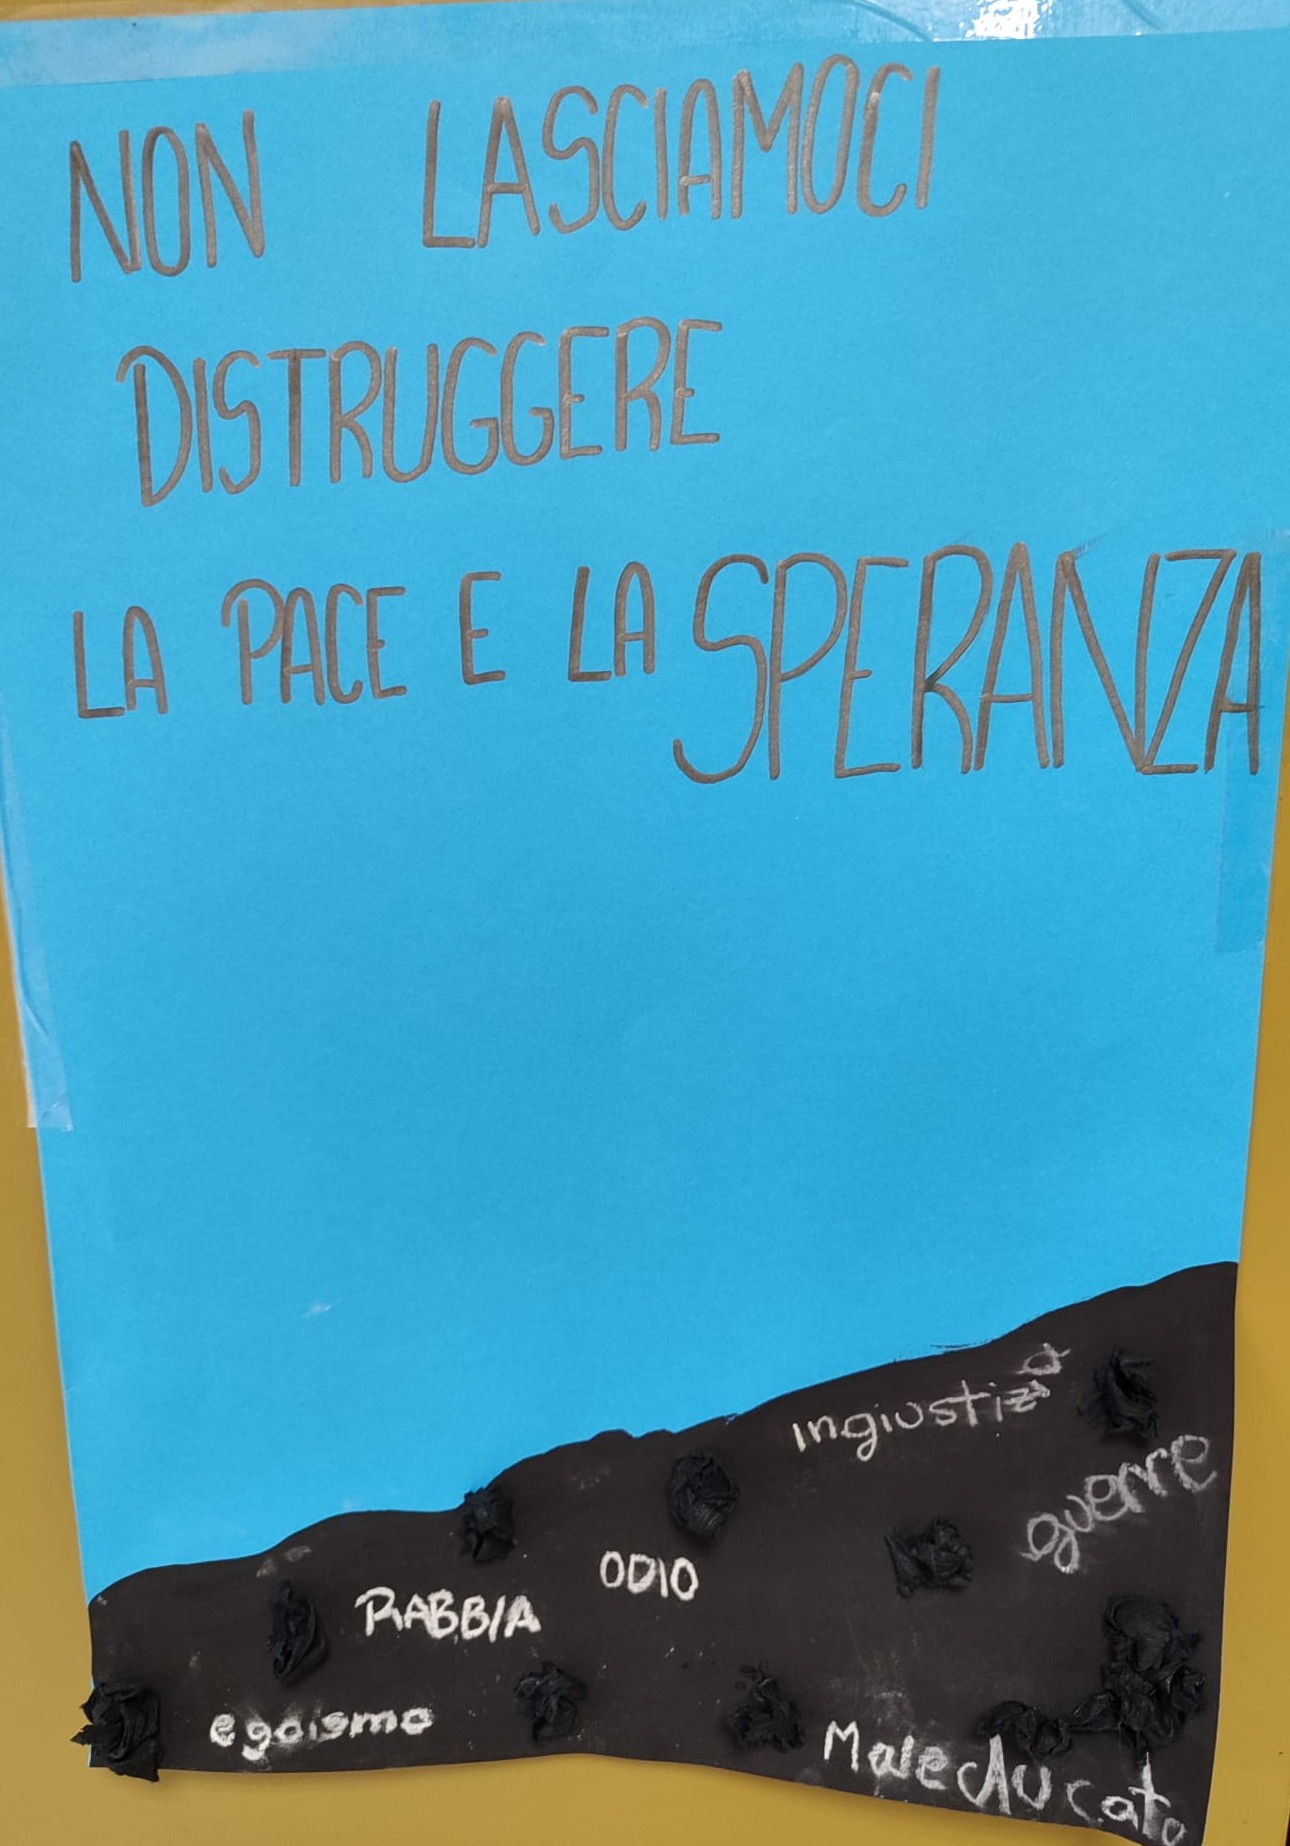 NON LASCIAMOCI
DISTRUGGERE
LA PACE E LA SPERANZA
ingiustizia
guerre
ODIO
RABBIA
egoismo
Maleducato